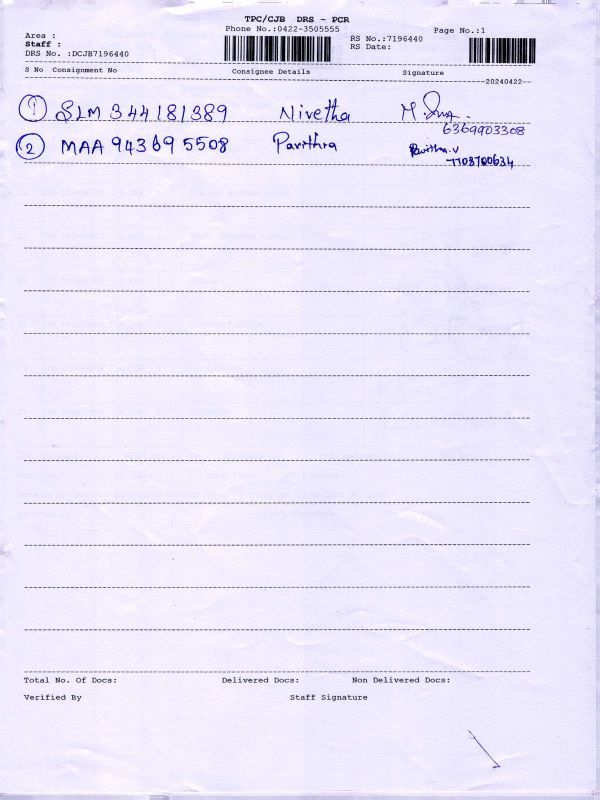 TPC/CJB DRS - PCR
Phone No.:0422-3505555
Page No.:1
Area :
RS No.:7196440
Staff :
RS Date:
DRS No. :DCJB7196440
S No Consignment No Consignee Details Signature
20240422
1 SLM 344181389 Nivetha M.
6369903308
2 MAA 943695508 Pavithra Pavithra.v
7708700634
Total No. Of Docs: Delivered Docs: Non Delivered Docs:
Verified By Staff Signature